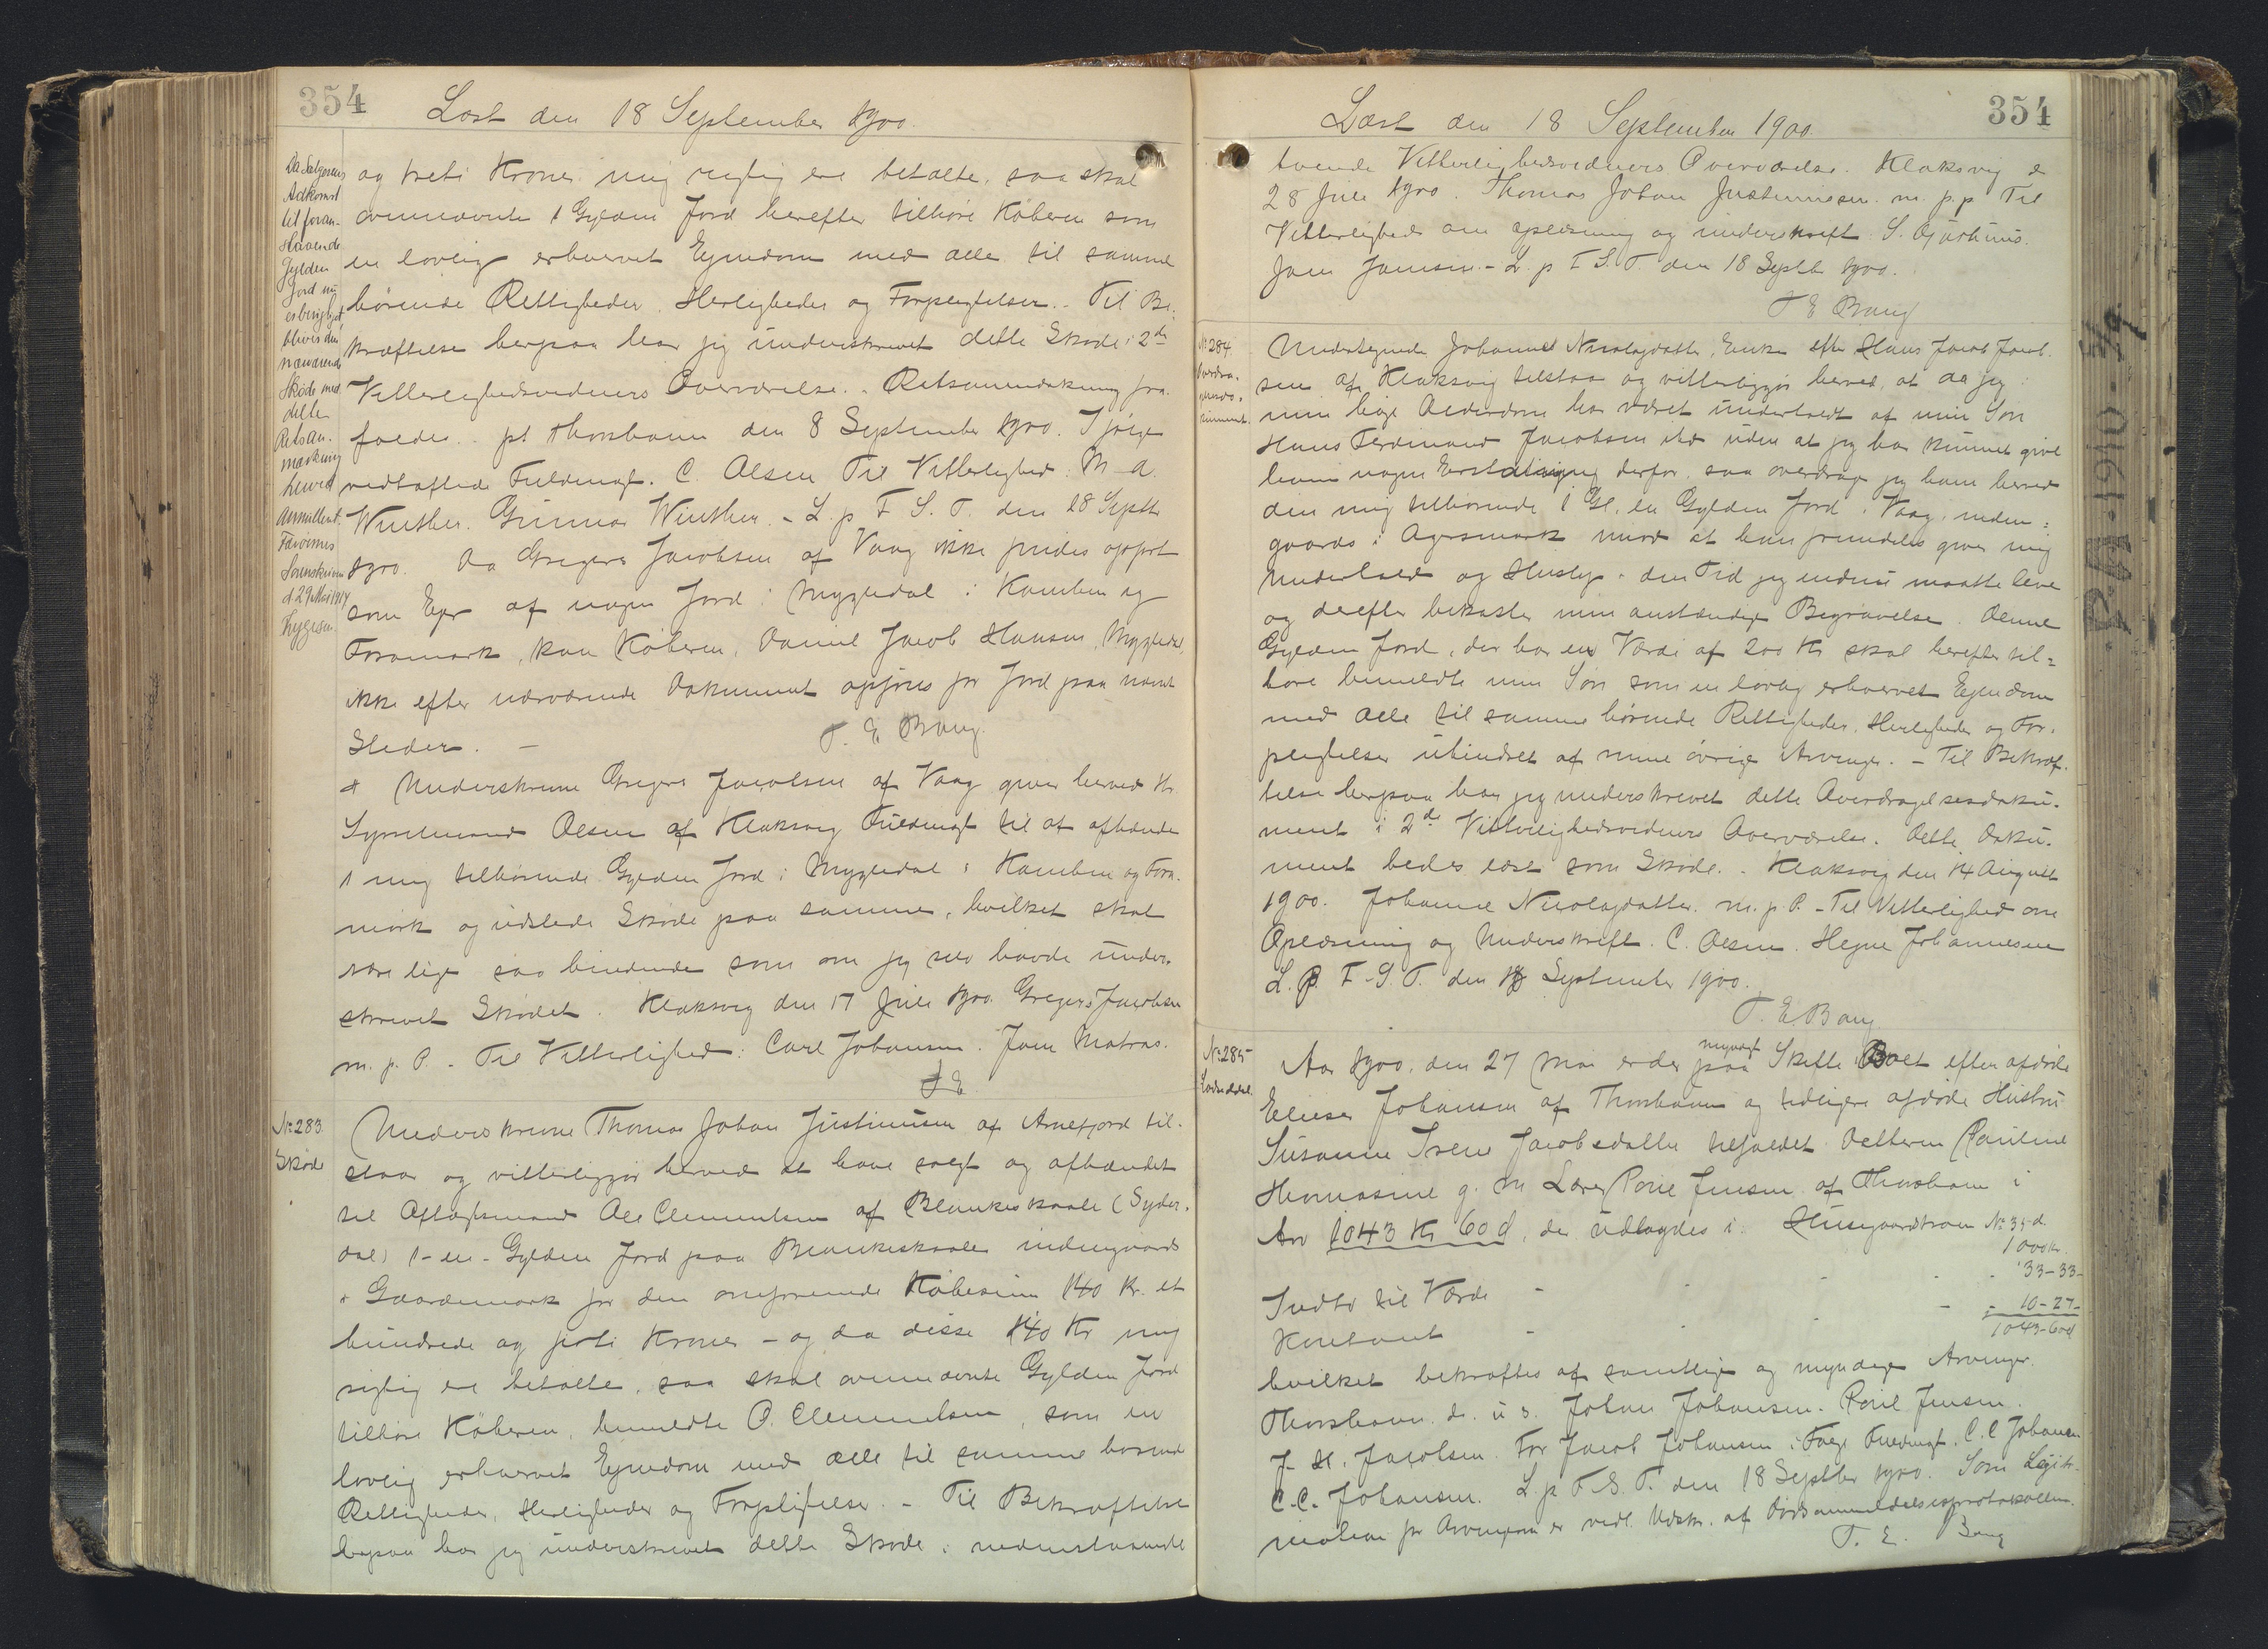 354
Læst den 18 September 1900.
Da Sælgerens
Adkomst
til foran-
staaende
Gylden
Jord nu
er berigtiget
bliver den
nærværende
Skøde med-
delte
Retsan-
mærkning
herved
Annulleret.
Færøernes
Sorenskriveri
d. 29 Mai 1914
og treti Kroner mig rigtig ere betalte, saa skal
ovennævnte 1 Gylden Jord herefter tilhøre Køberen som
en lovlig erhvervet Ejendom med alle til samme
hørende Rettigheder, Herligheder og Forpligtelser. - Til Be-
kræftelse herpaa har jeg underskrevet dette Skøde i 2de
Vitterlighedsvidners Overværelse. - Retsanmærkning fra-
faldes. - pt Thorshavn den 8 September 1900. I følge
vedhæftede Fuldmagt. C. Olsen Til Vitterlighed: M. A.
Winther. Gunnar Winther. - L. p. F. S. T. den 18 Septbr
1900. Da Gregers Jacobsen af Vaag ikke findes opført
som Ejer af nogen Jord i Mygledal i Kamben og
Foramark, kan Køberen, Daniel Jacob Hansen, Mygledal,
ikke efter nærværende Dokument opføres for Jord paa nævnte
Steder. -
T. E. Bang.
Underskrevne Gregers Jacobsen af Vaag giver herved Hr.
Sysselmand Olsen af Klaksvig Fuldmagt til at afhænde
1 mig tilhørende Gylden Jord i Mygledal i Kamben og Fora-
mark og udstede Skøde paa samme, hvilket skal
være lige saa bindende som om jeg selv havde under-
skrevet Skødet. Klaksvig den 17 Juli 1900. Gregers Jacobsen
m. p. P. - Til Vitterlighed: Carl Johansen. Joen Matras.
T E
No 283.
Skøde
Underskrevne Thomas Johan Justinussen af Arnefjord til-
staar og vitterliggjør herved at have solgt og afhændet
til Aftægtsmand Ole Clementsen af Blankeskaale (Syder-
dal) 1 - en - Gylden Jord paa Blankeskaale indengaards
i Gaardemark for den omforenede Købesum 140 Kr. et
hundrede og firti Kroner - og da disse 140 Kr mig
rigtig ere betalte, saa skal ovennævnte Gylden Jord
tilhøre Køberen, bemeldte O. Clementsen, som en
lovlig erhvervet Ejendom med alle til samme hørende
Rettigheder, Herligheder og Forpligtelser. - Til Bekræftelse
herpaa har jeg underskrevet dette Skøde i nedenstaaende
Læst den 18 September 1900.
354
tvende Vitterlighedsvidners Overværelse. Klaksvig d
28 Juli 1900. Thomas Johan Justinussen. m. p. p Til
Vitterlighed om oplæsning og underskrift
Joen Joensen. - L. p F. S. T. den 18 Septbr 1900.
T E Bang
No 284.
Overdra-
gelsesdo-
kument.
Undertegnede Johanne Nicolajdatter, Enke efter Hans Jacob Jacob-
sen af Klaksvig tilstaar og vitterliggjør herved, at da jeg i
min høje Alderdom har været underholdt af min Søn
Hans Ferdinand Jacobsen uden at jeg har kunnet give
ham nogen Erstatning derfor, saa overdrager jeg ham herved
den mig tilhørende 1 Gl. en Gylden Jord i Vaag, inden-
gaards i Agersmark imod at han fremdeles giver mig
Underhold og Husly i den Tid jeg endnu maatte leve
og derefter bekoster min anstændige Begravelse. Denne
Gylden Jord, der har en Værdi af 200 Kr skal herefter til-
høre bemeldte min Søn som en lovlig erhvervet Ejendom
med alle til samme hørende Rettigheder, Herligheder og For-
pligtelser uhindret af mine øvrige Arvinger. - Til Bekræf-
telse herpaa har jeg underskrevet dette Overdragelsesdoku-
ment i 2de Vitterlighedsvidners Overværelse. Dette Doku-
ment bedes læst som Skøde. - Klaksvig den 14 August
1900. Johanne Nicolajdatter. m. p. P. - Til Vitterlighed om
Oplæsning og Underskrift. C. Olsen. Hejne Johannesen
L. P. F. S. T. den 18 September 1900.
T. E. Bang
No 285
Lodseddel.
Aar 1900, den 27 Mai er der paa Skifte i Boet efter afdøde
Elieser Johansen af Thorshavn og tidligere afdøde Hustru
Susanne Irene Jacobsdatter tilfaldet Datteren Pauline
Thomasine g. m Lærer Poul Jensen af Thorshavn i
Arv 1043 Kr 60 Ø, der udlagdes i. Husejendommen No 35 d.
1000 Kr.
Indbo til Værdi - - - - - 33-33-
Kontant - - - - 10-27-
1043-60Ø
hvilket bekræftes af samtlige og myndige Arvinger.
Thorshavn d. u s. Johan Johansen. Poul Jensen.
J. H. Jacobsen. For Jacob Johansen i Følge Fuldmagt. C. C Johansen
C. C. Johansen. L. p F. S. T. den 18 Septbr 1900. Som Legiti-
mation for Arvingerne er vedl. Udskr. af Dødsanmeldelsesprotokollen.
T. E. Bang